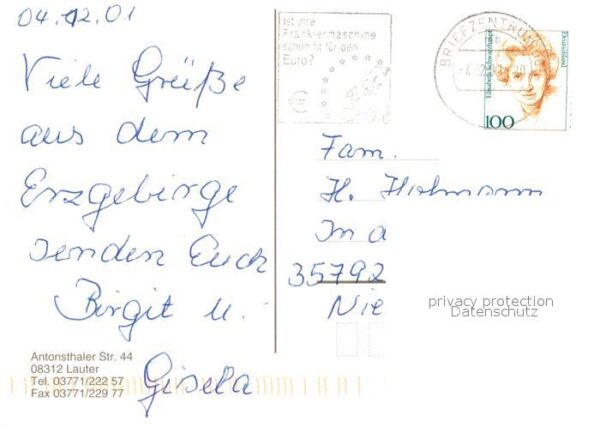 04.12.01
Viele Grüße
aus dem
Erzgebirge
senden Euch
Birgit u.
Gisela
Antonsthaler Str. 44
08312 Lauter
Tel. 03771/222 57
Fax 03771/229 77
Ist ihre
Frankiermaschine
schon fit für den
Euro?
€
BRIEFZENTRUM
Deutschland
100
Fam.
H. Hofmann
In d
35792
Nie
privacy protection
Datenschutz